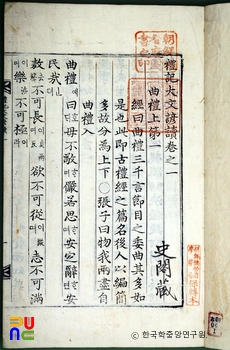 禮記大文諺讀卷之一
曲禮上第一
經曰曲禮三千言節目之委曲其多如
是也此即古禮經之篇名後人以編簡
多故分為上下○張子曰物我兩盡自
曲禮入
曲禮예曰毋不敬ᄒᆞ며儼若思ᄒᆞ며安定辭ᄒᆞ면安
民哉ᆫ뎌
敖不可長이며欲不可從이며志不可滿
이며樂不可極이니라
史閣藏
© 한국학중앙연구원